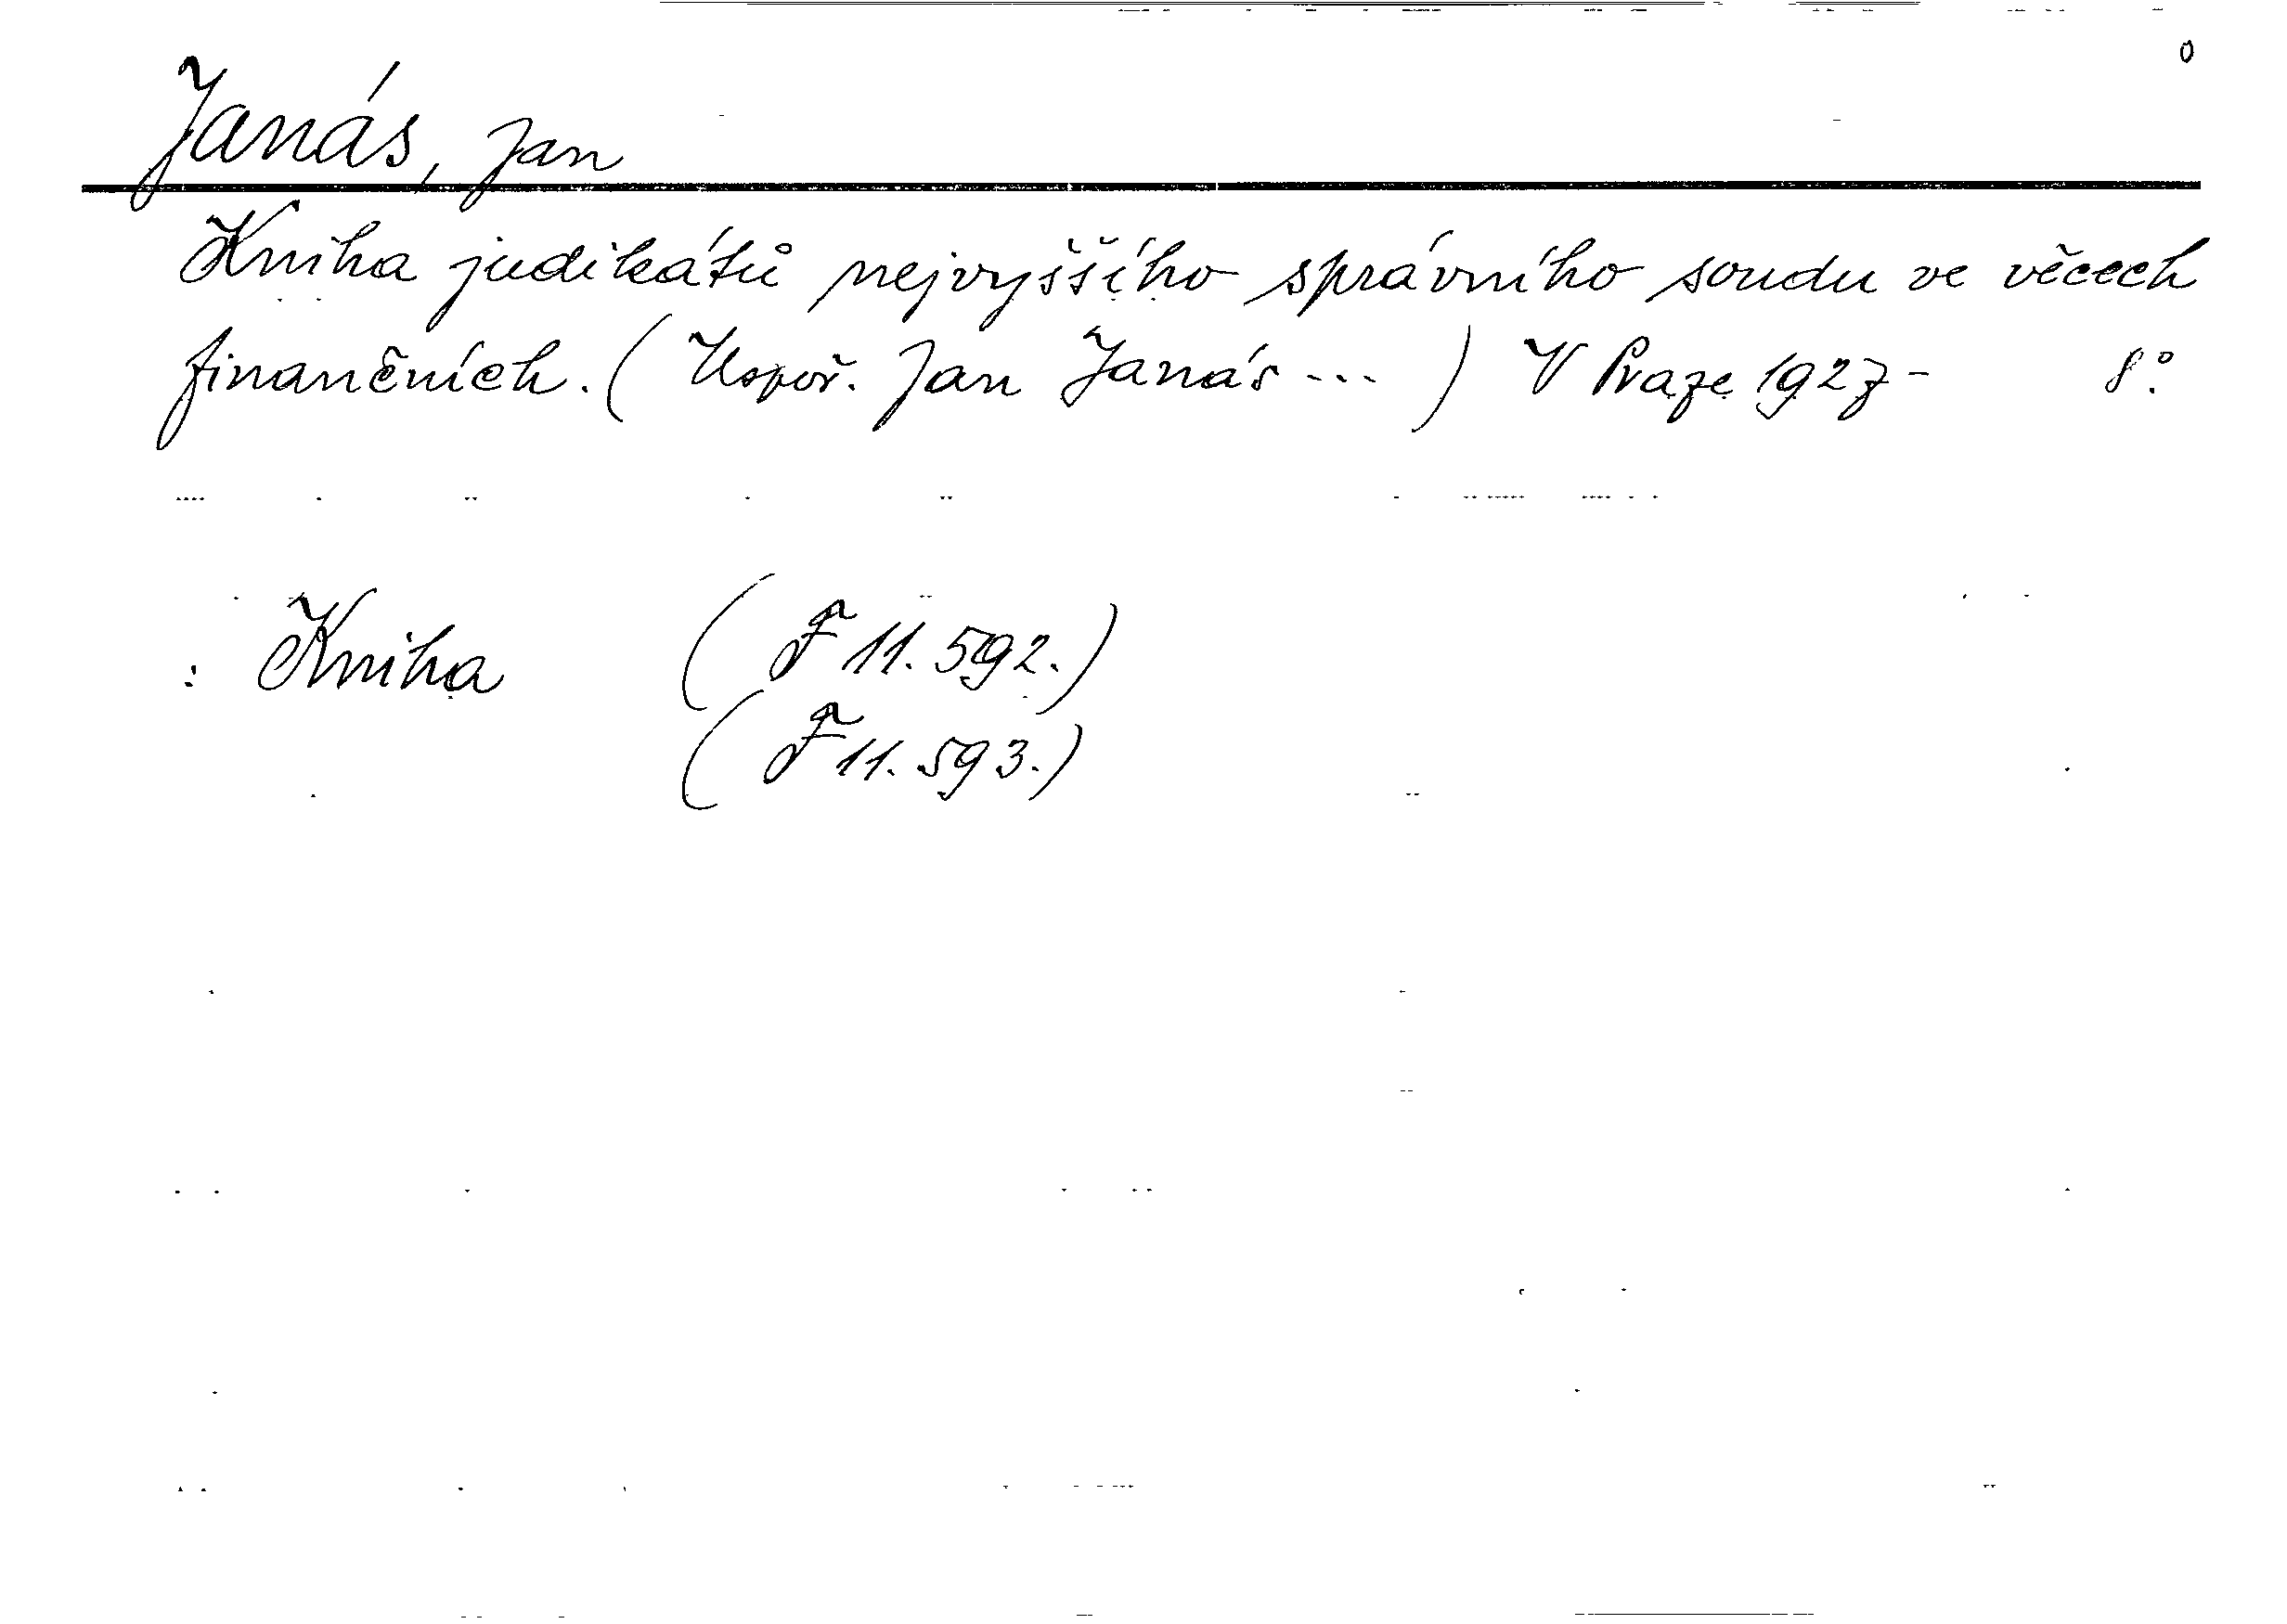 0
Janás, Jan
Kniha judikátů nejvyššího správního soudu ve věcech
finančních. (Uspoř. Jan Janás ... ) V Praze 1927- 8°.
: Kniha (F 11.592.)
(F 11.593.)